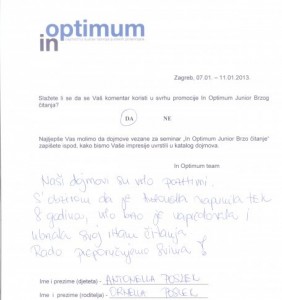 in optimum
Zagreb, 07.01. – 11.01.2013.
Slažete li se da se Vaš komentar koristi u svrhu promocije In Optimum Junior Brzog
čitanja?
DA NE
Najljepše Vas molimo da dojmove vezane za seminar „In Optimum Junior Brzo čitanje"
zapišete ispod, kako bismo Vaše impresije uvrstili u katalog dojmova.
In Optimum team
Naši dojmovi su vrlo pozitivni.
S obzirom da je Antonella napunila tek
8 godina, vrlo brzo je napredovala i
ubrzala svoj ritam čitanja
Rado preporučujemo svima!
Ime i prezime (djeteta) - ANTONELLA
Ime i prezime (roditelja) - ORNELLA